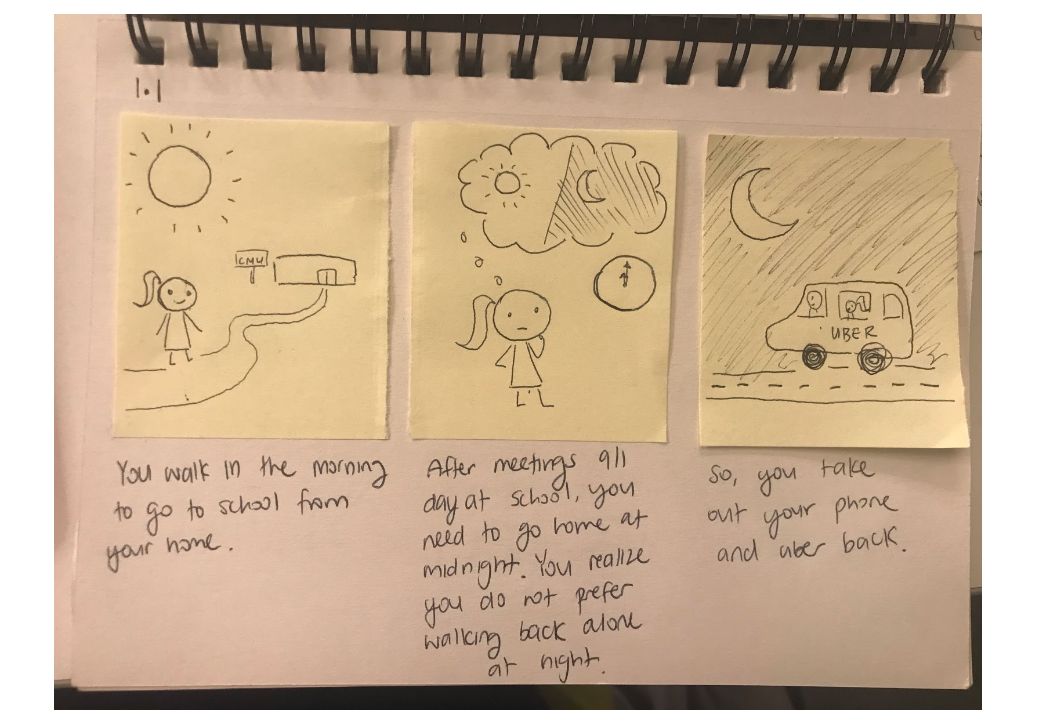 1.1
CMU
UBER
You walk in the morning
to go to school from
your home.
After meetings all
day at school, you
need to go home at
midnight. You realize
you do not prefer
walking back alone
at night.
So, you take
out your phone
and uber back.